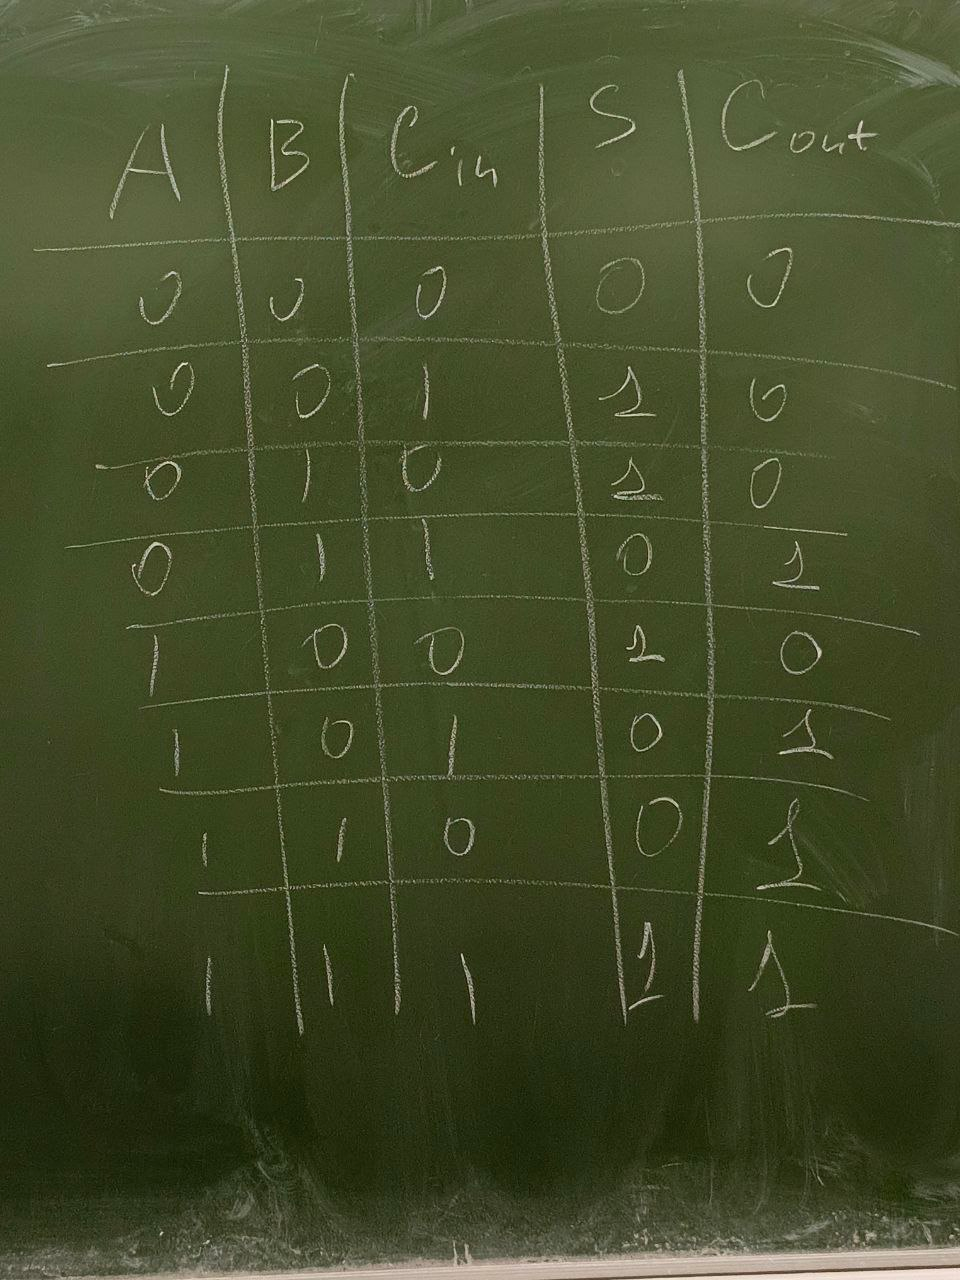 A B Cin S Cout
0 0 0 0 0
0 0 1 1 0
0 1 0 1 0
0 1 1 0 1
1 0 0 1 0
1 0 1 0 1
1 1 0 0 1
1 1 1 1 1